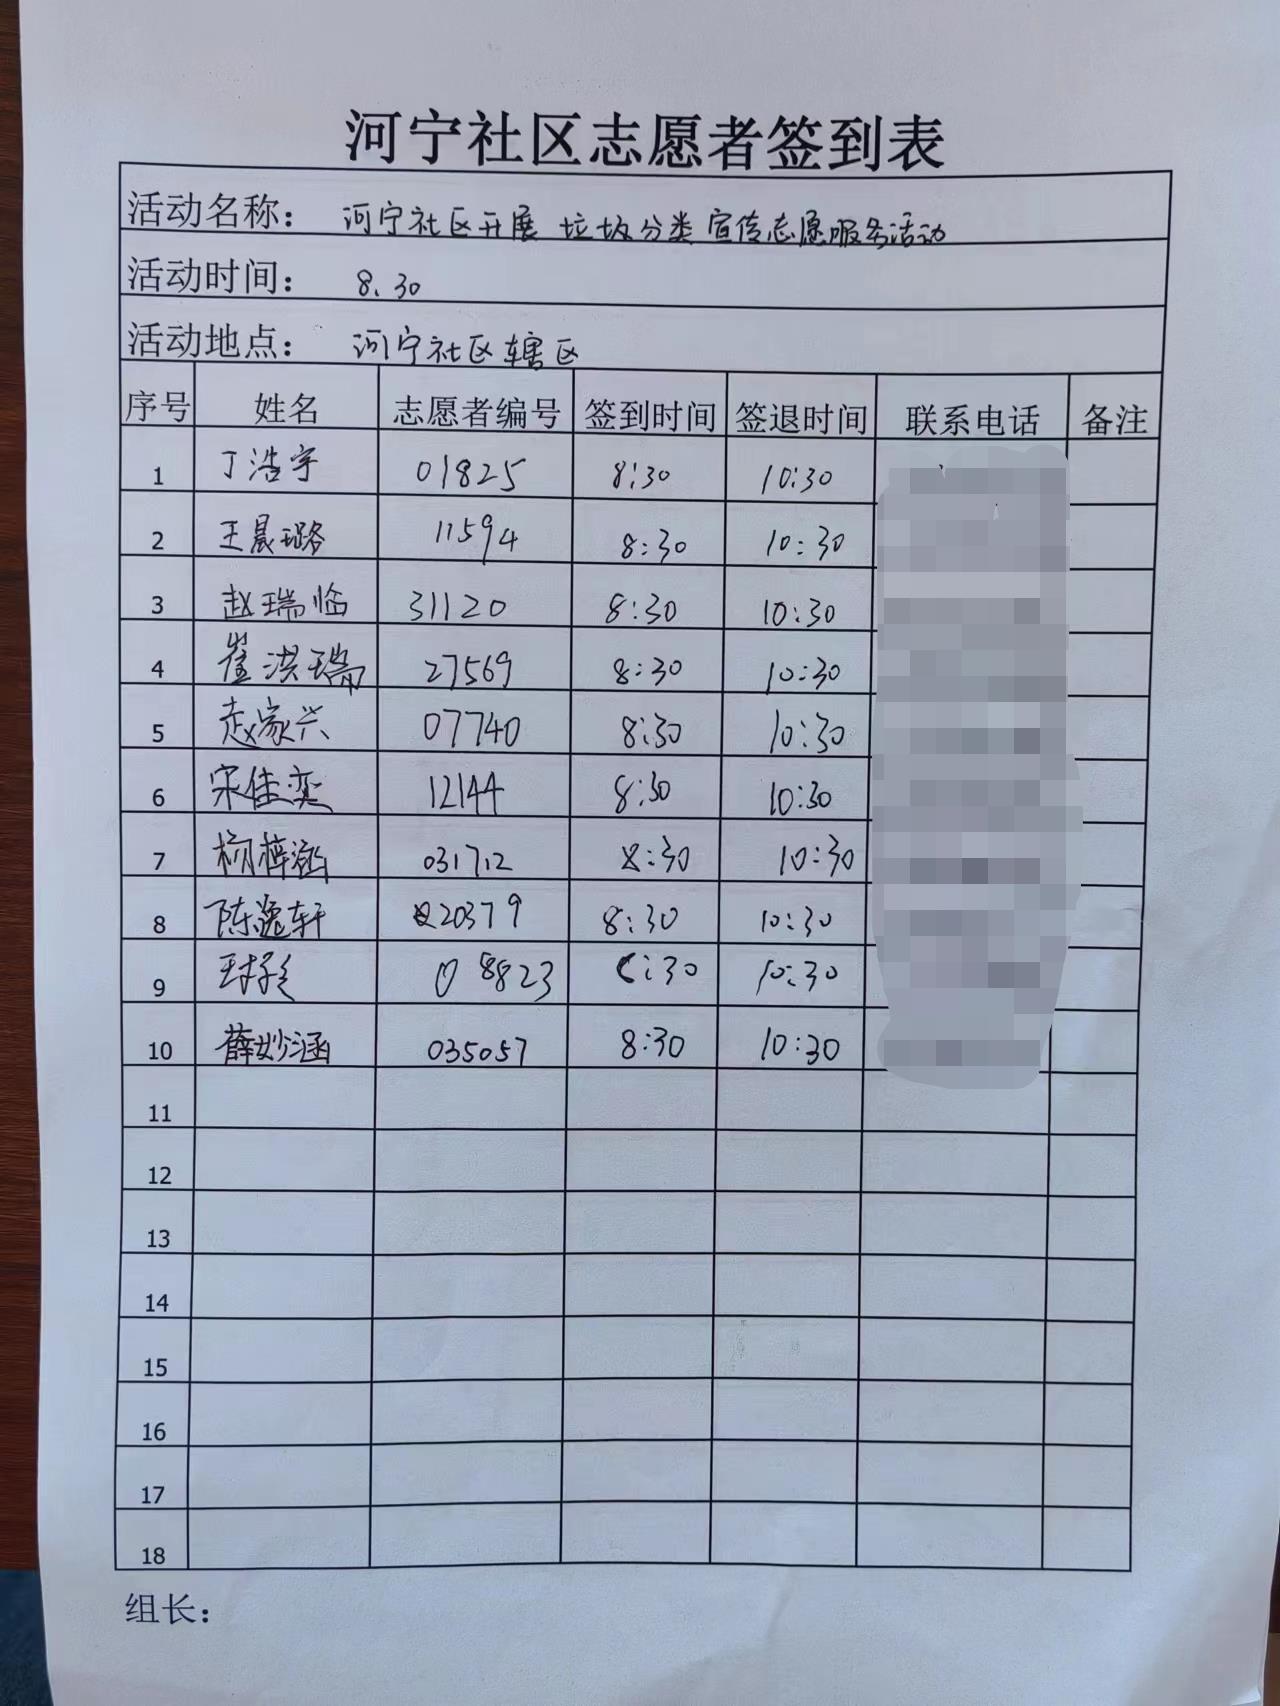 河宁社区志愿者签到表
活动名称： 河宁社区开展 垃圾分类宣传志愿服务活动
活动时间： 8.30
活动地点： 河宁社区辖区
序号 姓名 志愿者编号 签到时间 签退时间 联系电话 备注
1 丁浩宇 01825 8:30 10:30
2 王晨璐 11594 8:30 10:30
3 赵瑞临 31120 8:30 10:30
4 崔洪瑞 27569 8:30 10:30
5 赵家兴 07740 8:30 10:30
6 宋佳奕 12144 8:30 10:30
7 杨梓涵 031712 8:30 10:30
8 陈逸轩 20379 8:30 10:30
9 08823 :30 10:30
10 薛妙涵 035057 8:30 10:30
11
12
13
14
15
16
17
18
组长：